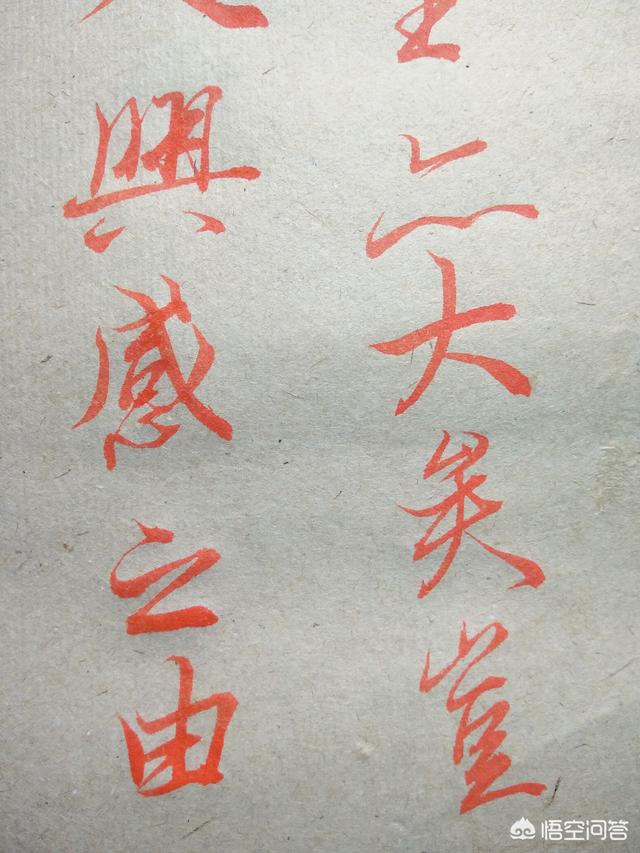 生亦大矣豈
興感之由
悟空问答